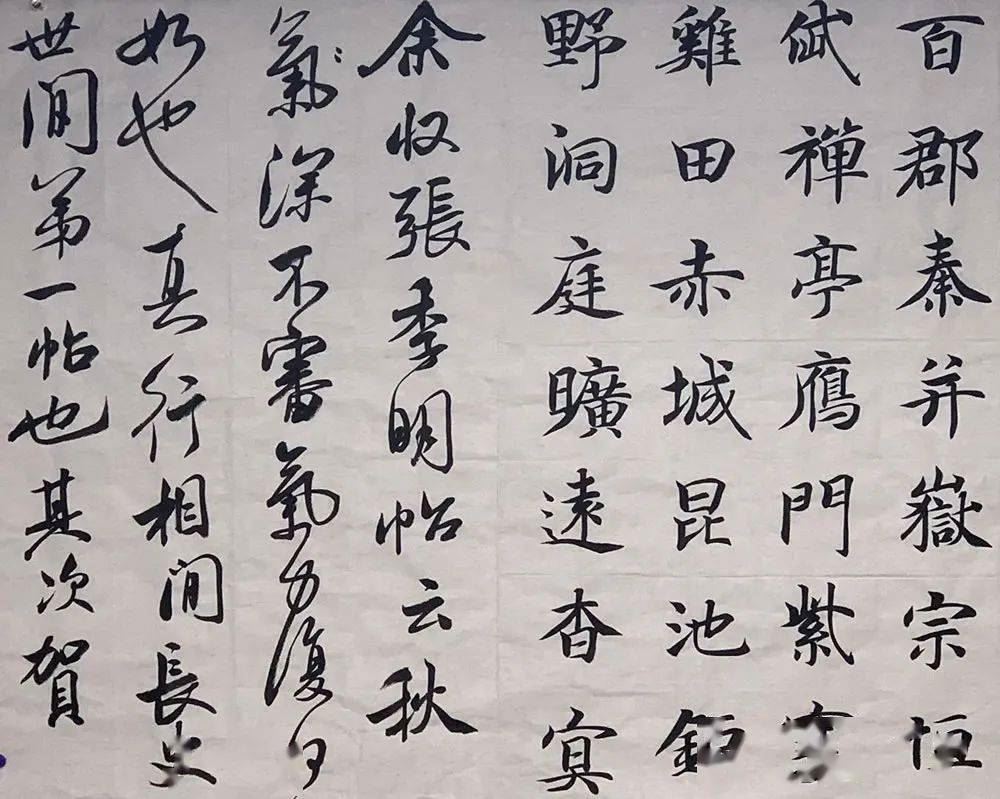 百郡秦并嶽宗恒
岱禪亭鴈門紫塞
雞田赤城昆池鉅
野洞庭曠遠杳冥
余收張季明帖云秋
氣深不審氣力復何
如也真行相間長史
世間第一帖也其次賀